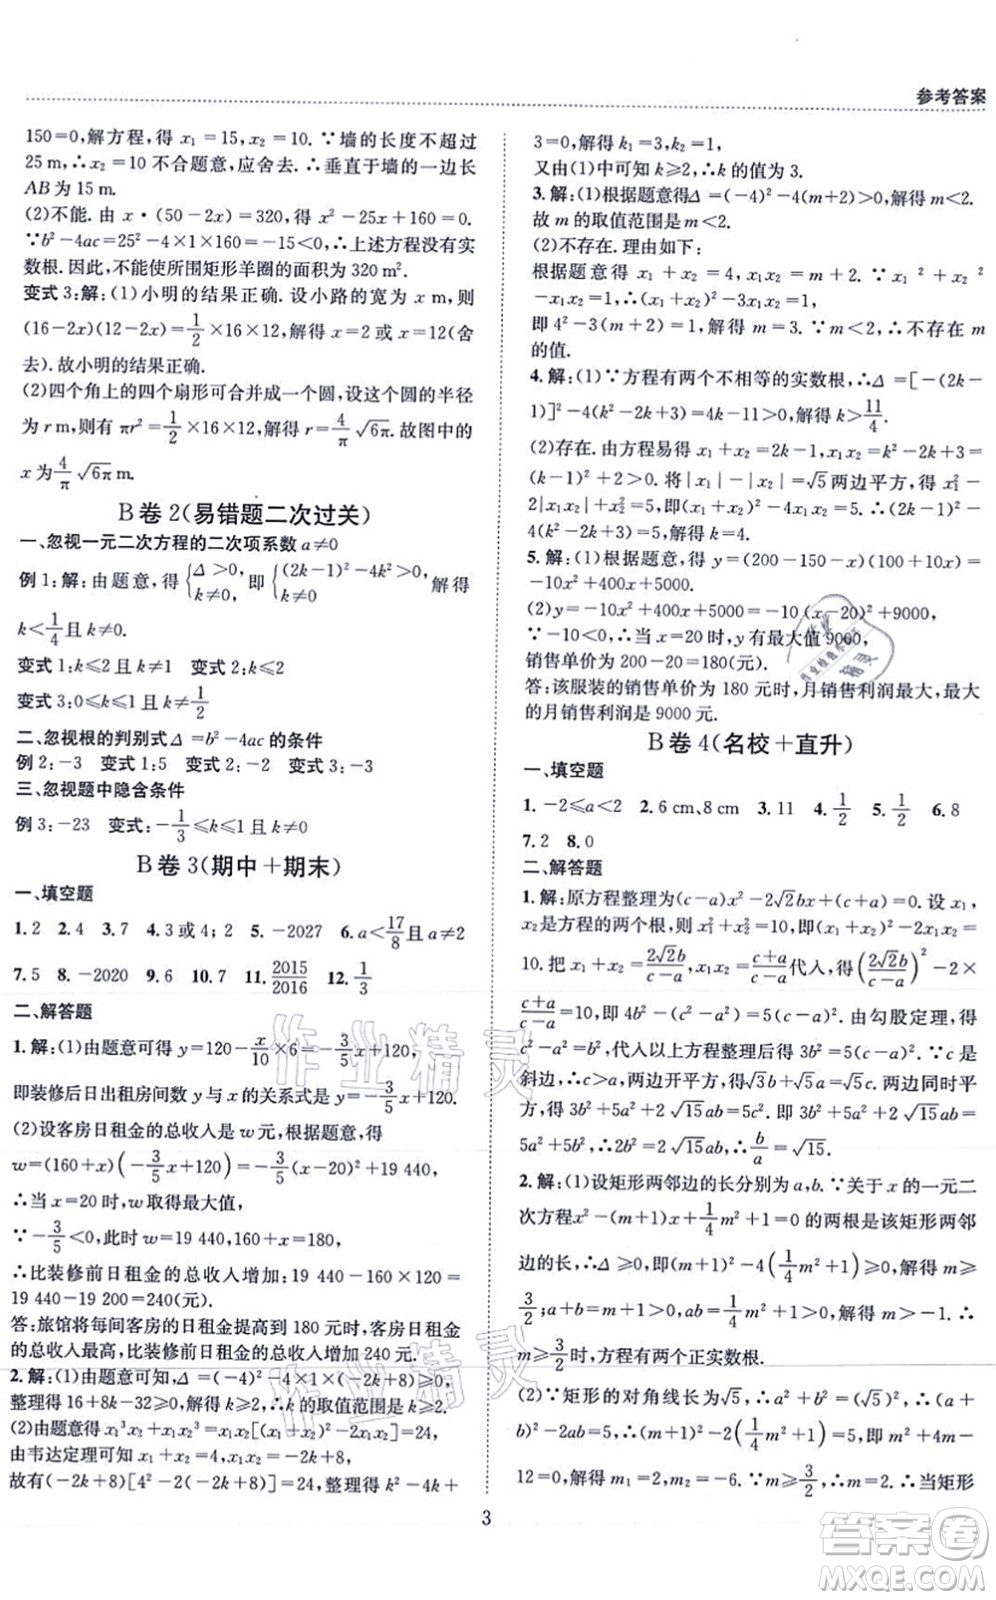 参考答案
150=0,解方程,得 x₁=15,x₂=10.∵墙的长度不超过
25 m,∴x₂=10 不合题意,应舍去.∴垂直于墙的一边长
AB 为 15 m.
(2)不能.由 x·(50-2x)=320,得 x²-25x+160=0.
∵b²-4ac=25²-4×1×160=-15<0,∴上述方程没有实
数根.因此,不能使所围矩形羊圈的面积为 320 m².
变式 3:解:(1)小明的结果正确.设小路的宽为 x m,则
(16-2x)(12-2x)=1/2×16×12,解得 x=2 或 x=12(舍
去).故小明的结果正确.
(2)四个角上的四个扇形可合并成一个圆,设这个圆的半径
为 r m,则有 πr²=1/2×16×12,解得 r=4/π√6π.故图中的
x 为 4/π√6π m.
B 卷 2(易错题二次过关)
一、忽视一元二次方程的二次项系数 a≠0
例 1:解:由题意,得{Δ>0, k≠0, 即{(2k-1)²-4k²>0, k≠0, 解得
k<1/4且 k≠0.
变式 1:k≤2 且 k≠1 变式 2:k≤2
变式 3:0≤k≤1 且 k≠1/2
二、忽视根的判别式 Δ=b²-4ac 的条件
例 2:-3 变式 1:5 变式 2:-3 变式 3:-3
三、忽视题中隐含条件
例 3:-23 变式:-1/3≤k≤1 且 k≠0
B 卷 3(期中+期末)
一、填空题
1.2 2.4 3.7 4.3 或 4;2 5.-2027 6.a<17/8且 a≠2
7.5 8.-2020 9.6 10.7 11.2015/2016 12.1/3
二、解答题
1.解:(1)由题意可得 y=120-x/10×6=-3/5x+120,
即装修后日出租房间数 y 与 x 的关系式是 y=-3/5x+120.
(2)设客房日租金的总收入是 w 元,根据题意,得
w=(160+x)(-3/5x+120)=-3/5(x-20)²+19 440,
∴当 x=20 时,w 取得最大值,
∵-3/5<0,此时 w=19 440,160+x=180,
∴比装修前日租金的总收入增加:19 440-160×120=
19 440-19 200=240(元).
答:旅馆将每间客房的日租金提高到 180 元时,客房日租金
的总收入最高,比装修前日租金的总收入增加 240 元.
2.解:(1)由题意可知,Δ=(-4)²-4×1×(-2k+8)≥0,
整理得 16+8k-32≥0,解得 k≥2.∴k 的取值范围是 k≥2.
(2)由题意得 x₁³x₂+x₁x₂³=x₁x₂[(x₁+x₂)²-2x₁x₂]=24,
由韦达定理可知 x₁+x₂=4,x₁x₂=-2k+8,
故有(-2k+8)[4²-2(-2k+8)]=24,整理得 k²-4k+
3=0,解得 k₁=3,k₂=1.
又由(1)中可知 k≥2,∴k 的值为 3.
3.解:(1)根据题意得Δ=(-4)²-4(m+2)>0,解得 m<2.
故 m 的取值范围是 m<2.
(2)不存在.理由如下:
根据题意得 x₁+x₂=4,x₁x₂=m+2.∵x₁²+x₂²
-x₁x₂=1,∴(x₁+x₂)²-3x₁x₂=1,
即 4²-3(m+2)=1,解得 m=3.∵m<2,∴不存在 m
的值.
4.解:(1)∵方程有两个不相等的实数根,∴Δ=[-(2k-
1)]²-4(k²-2k+3)=4k-11>0,解得 k>11/4.
(2)存在.由方程易得 x₁+x₂=2k-1,x₁x₂=k²-2k+3=
(k-1)²+2>0.将|x₁|-|x₂|=√5两边平方,得 x₁²-
2|x₁x₂|+x₂²=5,即(x₁+x₂)²-4x₁x₂=5.∴(2k-1)²-
4(k²-2k+3)=5,即 4k-11=5,解得 k=4.
5.解:(1)根据题意,得 y=(200-150-x)(100+10x)=
-10x²+400x+5000.
(2)y=-10x²+400x+5000=-10(x-20)²+9000,
∵-10<0,∴当 x=20 时,y 有最大值 9000,
销售单价为 200-20=180(元).
答:该服装的销售单价为 180 元时,月销售利润最大,最大
的月销售利润是 9000 元.
B 卷 4(名校+直升)
一、填空题
1.-2≤a<2 2.6 cm、8 cm 3.11 4.1/2 5.1/2 6.8
7.2 8.0
二、解答题
1.解:原方程整理为(c-a)x²-2√2bx+(c+a)=0.设 x₁,
x₂是方程的两个根,则 x₁²+x₂²=(x₁+x₂)²-2x₁x₂=
10.把 x₁+x₂=2√2b/(c-a),x₁x₂=(c+a)/(c-a)代入,得(2√2b/(c-a))²-2×
(c+a)/(c-a)=10,即 4b²-5(c-a)²-(c²-a²)=0.由勾股定理,得
c²=a²+b²,代入以上方程整理后得 3b²+5a²=5ac.∵c 是
斜边,∴c>a,两边开平方,得√3b=√5a.两边同时平
方,得 3b²+5a²-2√15ab=5c²,即 3b²+5a²-2√15ab=
5a²+5b²,∴2b²=2√15ab,∴b/a=√15.
2.解:(1)设矩形两邻边的长分别为 a,b.∵关于 x 的一元二
次方程x²-(m+1)x+1/4m²+1=0 的两根是该矩形两邻
边的长,∴Δ=(m+1)²-4(1/4m²+1)≥0,解得 m≥
3/2;a+b=m+1>0,ab=1/4m²+1>0,解得 m>-1.∴
m≥3/2时,方程有两个正实数根.
(2)∵矩形的对角线长为√5,∴a²+b²=(√5)²,∴(a+
b)²-2ab=5,∴(m+1)²-2(1/4m²+1)=5,即m²+4m-
12=0,解得 m₁=2,m₂=-6.∵m≥3/2,∴m=2.∴当矩形
3
作业精灵
作业精灵
答案圈
MXQE.COM